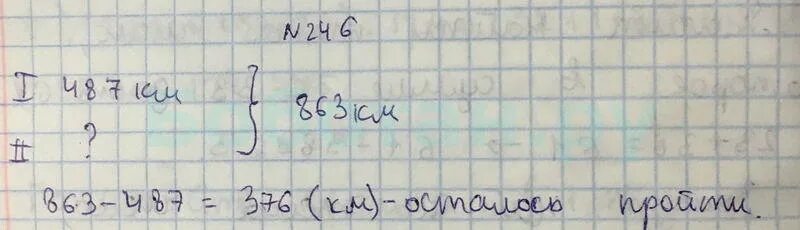 N246
I 487 км } 863 км
II ?
863-487 = 376 (км)-осталось пройти.